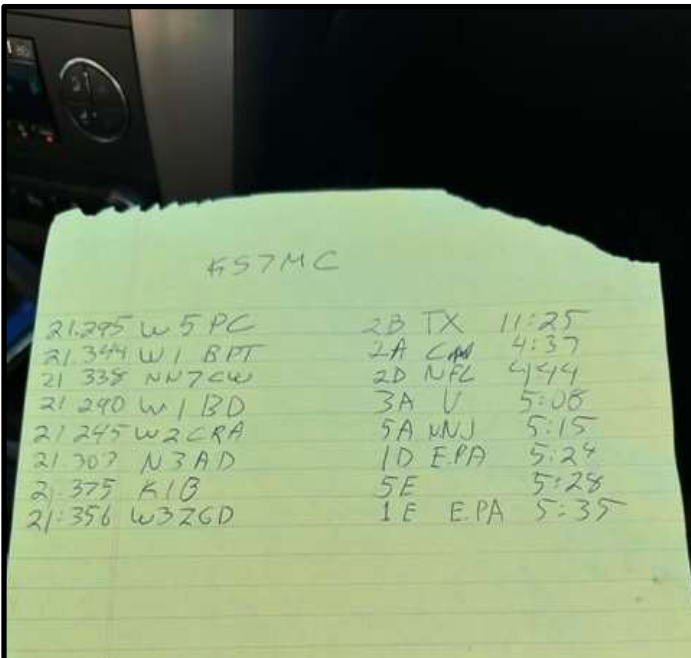 KS7MC
21.295 W5PC 2B TX 11:25
21.344 W1BPT 2A 4:37
21 338 NN7CW 2D NFL 4:44
21 290 W1BD 3A V 5:08
21 245 W2CRA 5A NNJ 5:15
21 307 N3AD 1D E.PA 5:24
21.375 K1B 5E 5:28
21.356 W3ZGD 1E E.PA 5:35